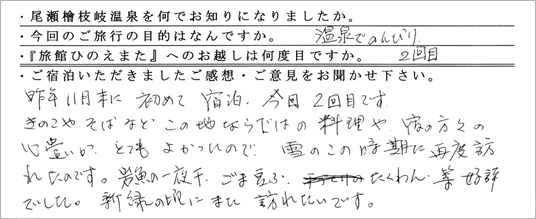 ・尾瀬檜枝岐温泉を何でお知りになりましたか。
・今回のご旅行の目的はなんですか。 温泉でのんびり
・『旅館ひのえまた』へのお越しは何度目ですか。 2回目
・ご宿泊いただきましたご感想・ご意見をお聞かせ下さい。
昨年11月末に初めて宿泊、今回2回目です。
きのこやそばなどこの地ならではの料理や、宿の方々の
心遣いがとてもよかったので、雪のこの時期に再度訪
れたのです。岩魚の一夜干、ごま豆ふ、たくわん 等 好評
でした。新緑の頃にまた訪れたいです。